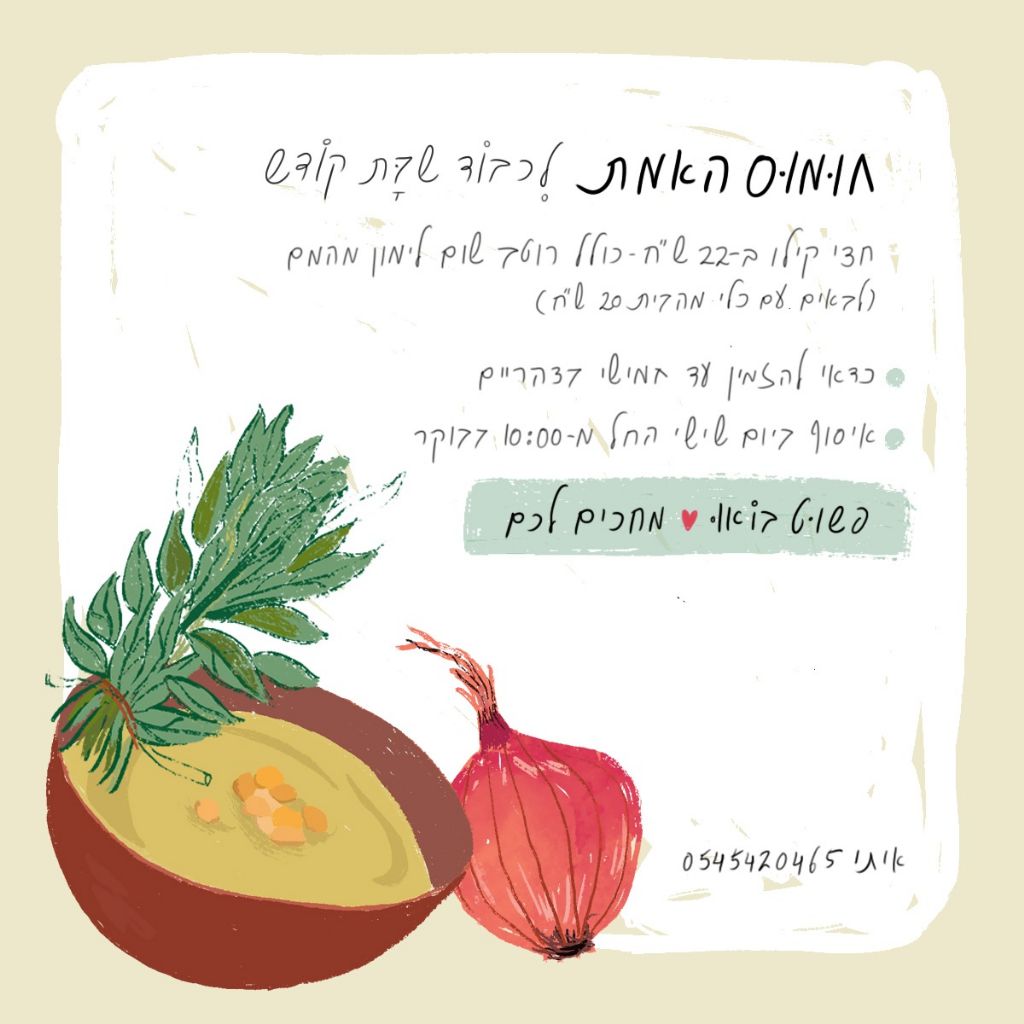 חוּמוּס האמת לְכבוֹד שבָּת קוֹדש
חצי קילו ב-22 ש"ח - כולל רוטב שום לימון מהמם
(לבאים עם כלי מהבית 20 ש"ח)
כדאי להזמין עד חמישי בצהריים
איסוף ביום שישי החל מ-10:00 בבוקר
פשוּט בוֹאוּ ♥ מחכים לכם
איתי 0545420465